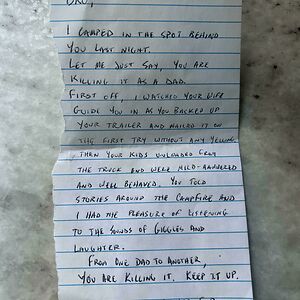 BRO,
I CAMPED IN THE SPOT BEHIND
YOU LAST NIGHT.
LET ME JUST SAY, YOU ARE
KILLING IT AS A DAD.
FIRST OFF, I WATCHED YOUR WIFE
GUIDE YOU IN AS YOU BACKED UP
YOUR TRAILER AND NAILED IT ON
THE FIRST TRY WITHOUT ANY YELLING.
THEN YOUR KIDS UNLOADED FROM
THE TRUCK AND WERE MILD-MANNERED
AND WELL BEHAVED. YOU TOLD
STORIES AROUND THE CAMPFIRE AND
I HAD THE PLEASURE OF LISTENING
TO THE SOUNDS OF GIGGLES AND
LAUGHTER.
FROM ONE DAD TO ANOTHER
YOU ARE KILLING IT. KEEP IT UP.